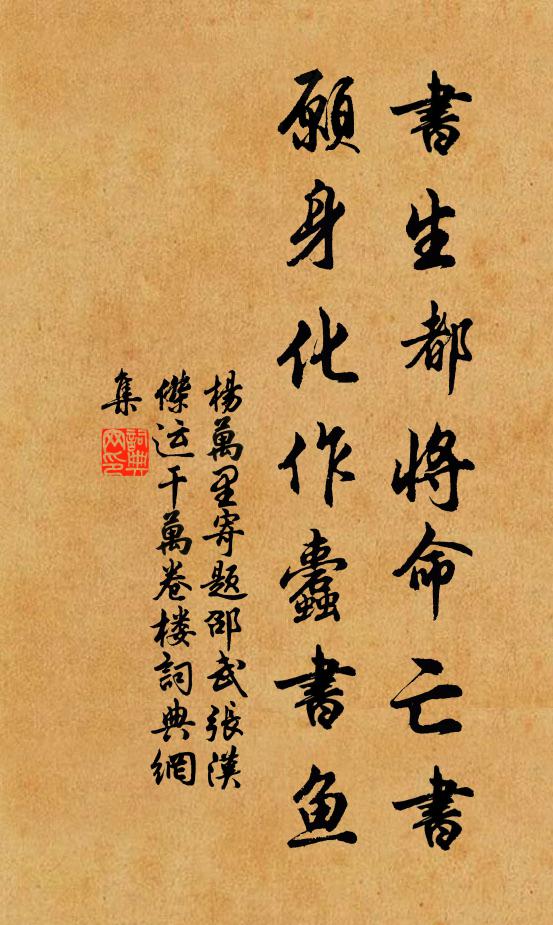 書生都將命亡書
願身化作蠹書魚
楊萬里寄題邵武張漢
傑运千萬卷楼詞典網
集
詞典
网印